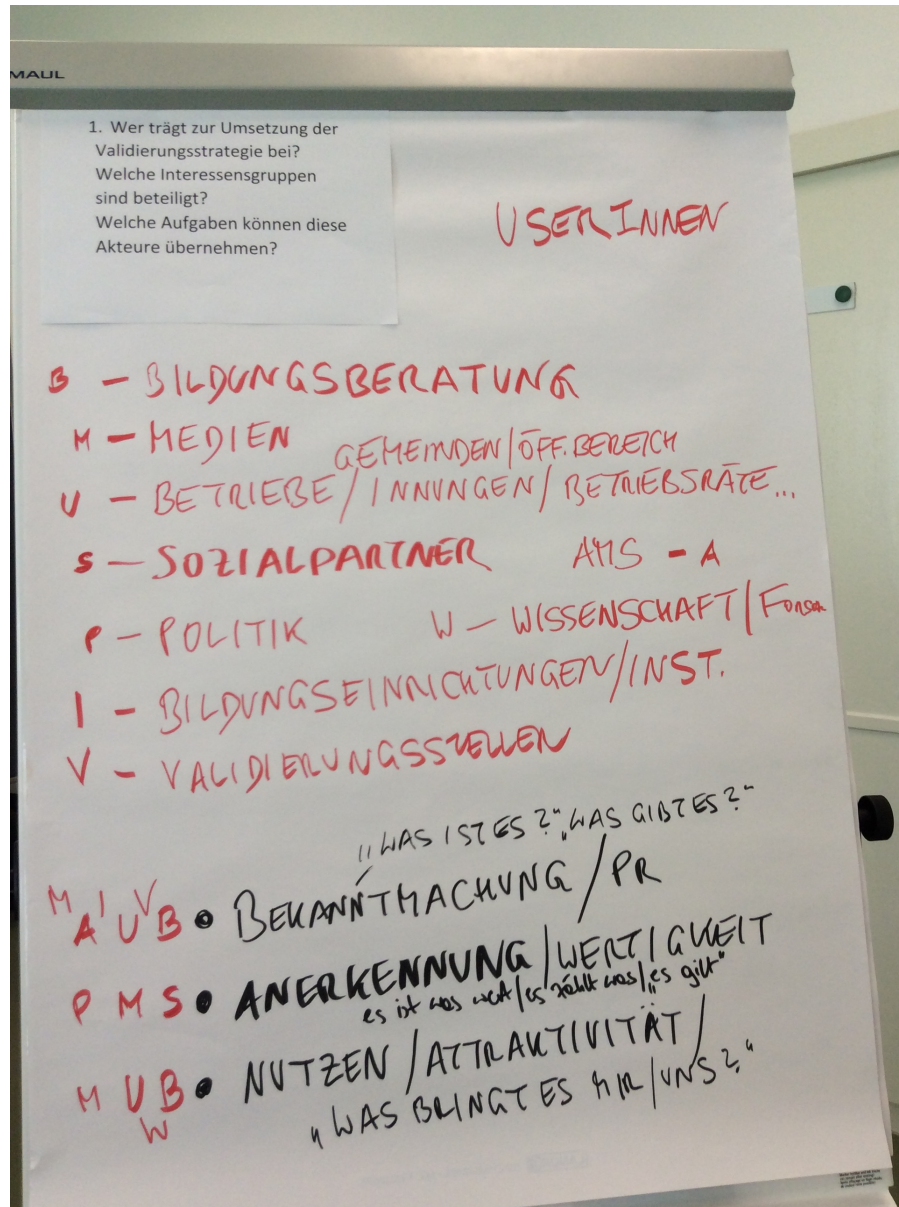 MAUL
1. Wer trägt zur Umsetzung der
Validierungsstrategie bei?
Welche Interessensgruppen
sind beteiligt?
Welche Aufgaben können diese
Akteure übernehmen?
USERINNEN
B – BILDUNGSBERATUNG
M – MEDIEN
GEMEINDEN/ÖFF. BEREICH
U – BETRIEBE/INNUNGEN/BETRIEBSRÄTE...
S – SOZIALPARTNER AMS – A
P – POLITIK W – WISSENSCHAFT/Forsch
I – BILDUNGSEINRICHTUNGEN/INST.
V – VALIDIERUNGSSTELLEN
„WAS IST ES?“ „WAS GIBT ES?“
M A I U V B • BEKANNTMACHUNG/PR
P M S • ANERKENNUNG/WERTIGKEIT
es ist was wert/es zählt was/„es gilt“
M U B • NUTZEN/ATTRAKTIVITÄT/
W
„WAS BRINGT ES MIR/UNS?“